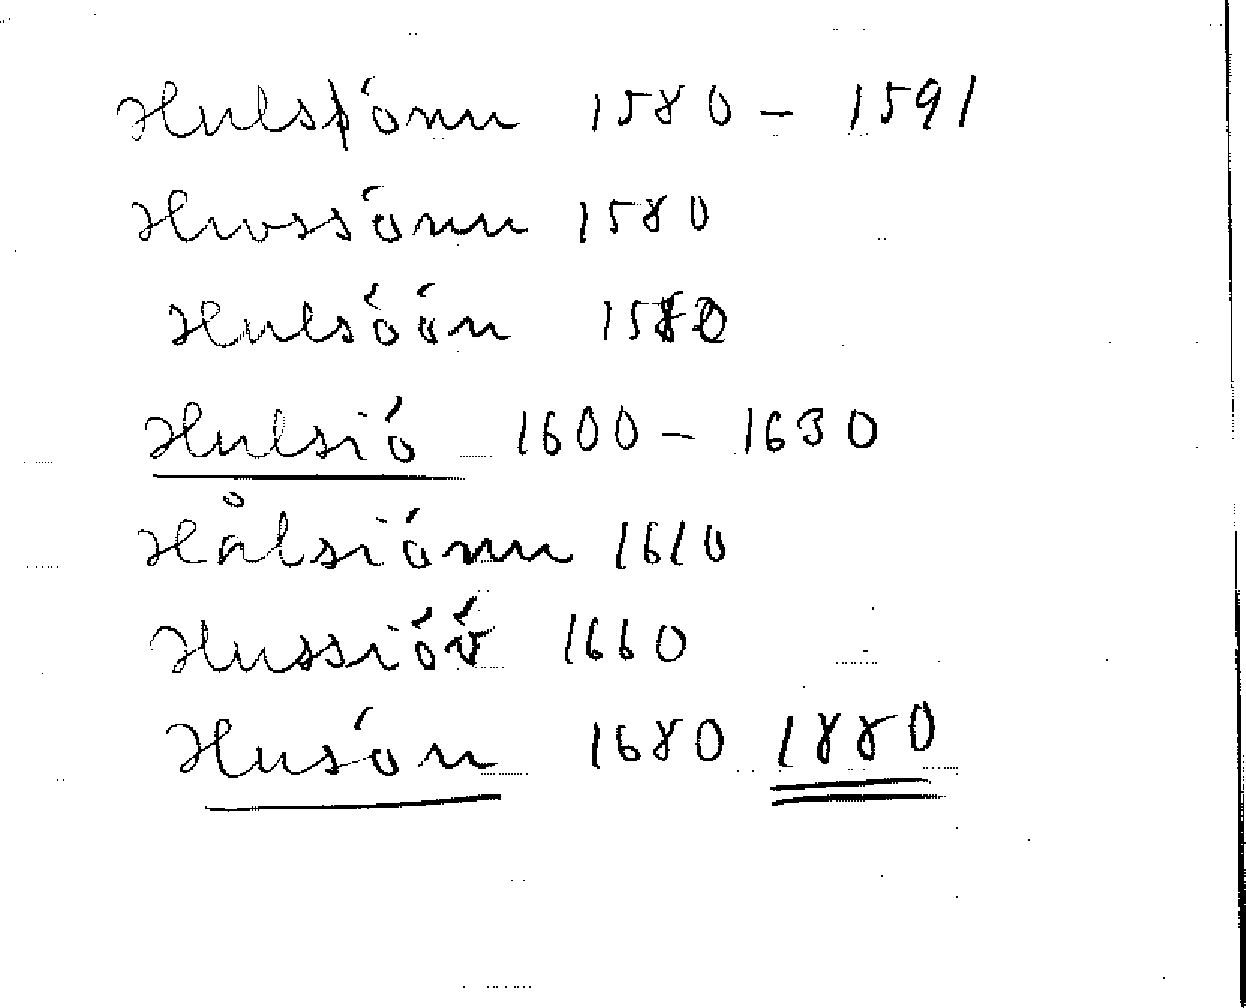 Hulsiönn 1580 - 1591
Hvossönn 1580
Hulsöön 1580
Hulsiö 1600 - 1630
Hålsiönn 1610
Hussiöö 1660
Husön 1680 1880